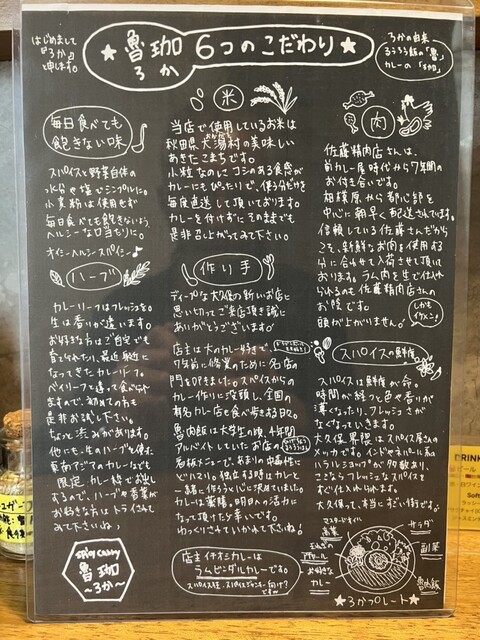 はじめまして
『ろか』
と申します。
★ 魯珈 6つのこだわり ★
ろか
ろかの由来
るうろう飯の「魯」
カレーの「珈」
毎日食べても
飽きない味
スパイスと野菜自体の
水分や塩でシンプルに。
小麦粉は使用せず
毎日食べても飽きないよう、
ヘルシーな口当たりに。
オイシーヘルシースパイシー♪
ハーブ
カレーリーフはフレッシュを。
生は香りが違います。
お好きな方はご自宅でも
育てられたり、最近身近に
なってきたカレーリーフ。
ベイリーフと違って食べられ
ますので、初めての方も
是非お試し下さい。
ちょっと渋みがあります。
他にも、生のハーブを使った
東南アジアのカレーなども
限定カレー枠でお出し
するので、ハーブや香菜が
お好きな方はトライされて
みて下さいね♪
spicy curry
魯珈
~ろか~
米
当店で使用しているお米は
秋田県大潟村の美味しい
あきたこまちです。
小粒なのにコシのある食感が
カレーにもぴったりで、使う分だけを
毎度直送して頂いております。
カレーを付けずに、そのままでも
是非召し上がってみて下さい。
作り手
ディープな大久保の新しいお店に
思い切ってご来店頂き誠に
ありがとうございます!
店主は大のカレー好きで
7年前に修業のために名店の
門をたたきました。スパイスからの
カレー作りに没頭し、全国の
有名カレー店を食べ歩きする日々。
魯肉飯は大学生の頃、七年間
アルバイトしていたお店の
看板メニューで、あまりの中毒性に
どハマり。独立する時はカレーと
一緒に作ろうと心に決めていました。
カレーは薬膳。明日への活力に
なって頂けたら幸いです。
ゆっくりさせていかれて下さいね!
店主イチオシカレーは
ラムビンダルカレーです。
肉
佐藤精肉店さんは、
前カレー屋時代から7年間の
お付き合いです。
相模原から都心部を
中心に朝早く配送されてます。
信頼している佐藤さんだから
こそ、新鮮なお肉を使用する
分に合わせて入荷させて頂いて
おります。ラム肉を生で仕入れ
られるのも佐藤精肉店さんの
お陰です。
頭が上がりません!
しかも
イケメン。
スパイスの鮮度
スパイスは鮮度が命。
時間が経つと色や香りが
薄くなったり、フレッシュさが
なくなっていきます。
大久保界隈はスパイス屋さんの
メッカです。インドやネパール系の
ハラルショップが多数あり、
ここならフレッシュなスパイスを
すぐ仕入れられます。
大久保って、本当にすごい街です。
マスタードオイル
高菜
サラダ
副菜
玉ねぎの
アチャール
お好きな
カレー
魯肉飯
★ろかプレート★
DRINK
ビール
Soft